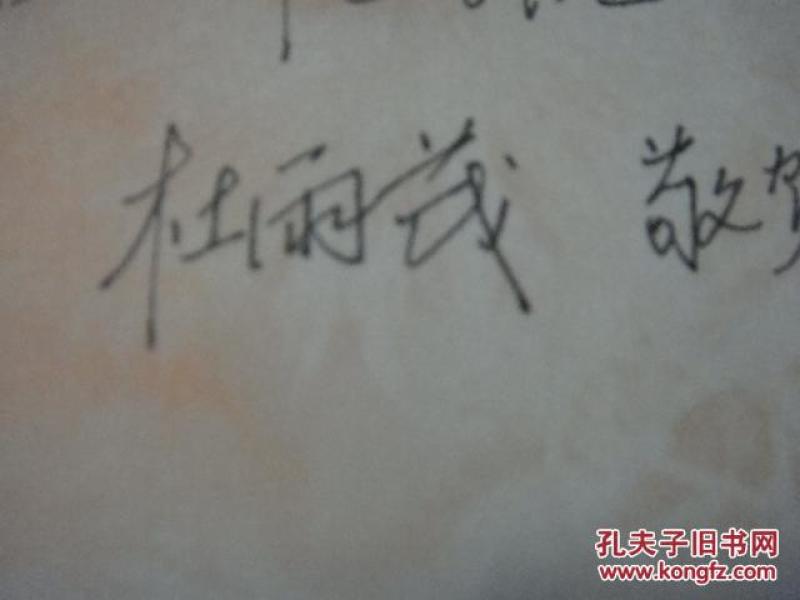 杜雨茂 敬贺
孔夫子旧书网
www.kongfz.com